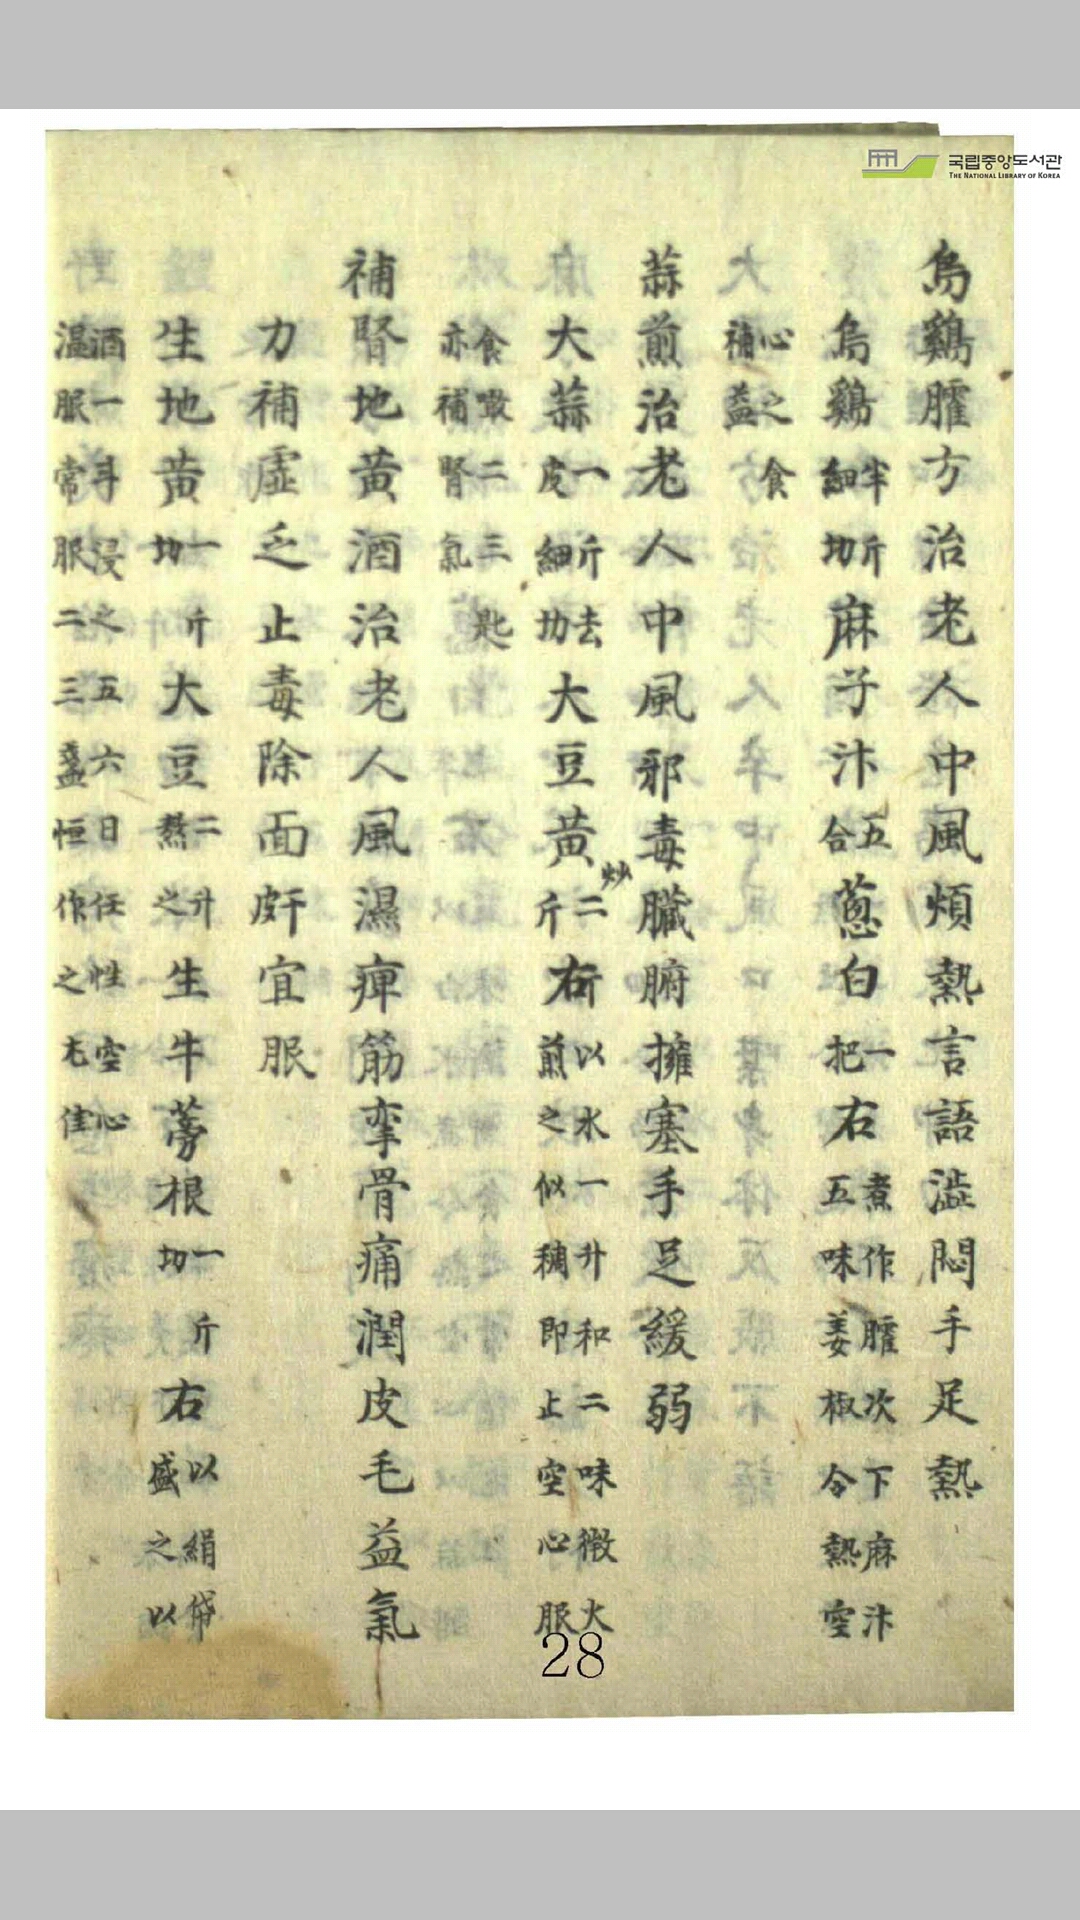 국립중앙도서관
THE NATIONAL LIBRARY OF KOREA
烏鷄臛方治老人中風煩熱言語澁悶手足熱
烏鷄半斤細切麻子汁五合葱白一把右煮作臛次下麻汁五味姜椒令熱空
心之食補益
蒜煎治老人中風邪毒臟腑擁塞手足緩弱
大蒜一斤去皮細切大豆黃炒二斤右以水一升和二味微火煎之似稠即止空心服
食啖二三匙亦補腎氣
補腎地黃酒治老人風濕痺筋攣骨痛潤皮毛益氣
力補虛乏止毒除面皯宜服
生地黃一斤切大豆二升熬之生牛蒡根一斤切右以絹袋盛之以
酒一斗浸之五六日任性空心溫服常服二三盞恒作之尤佳
28